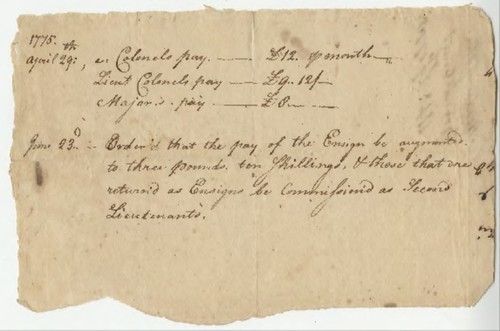 1775.
April 29th, a Colonels pay — £12. p month —
Lieut Colonels pay — £9. 12/—
Majors pay — £8 —
June 23d. Order'd that the pay of the Ensign be augmented
to three pounds ten Shillings, & those that are
return'd as Ensigns be Commission'd as Second
Lieutenants.